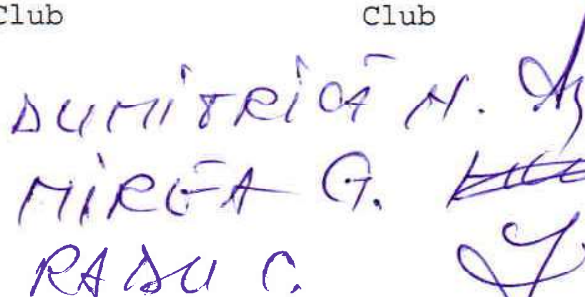 Club Club
DUMITRICĂ N.
MIREA G.
RADU C.